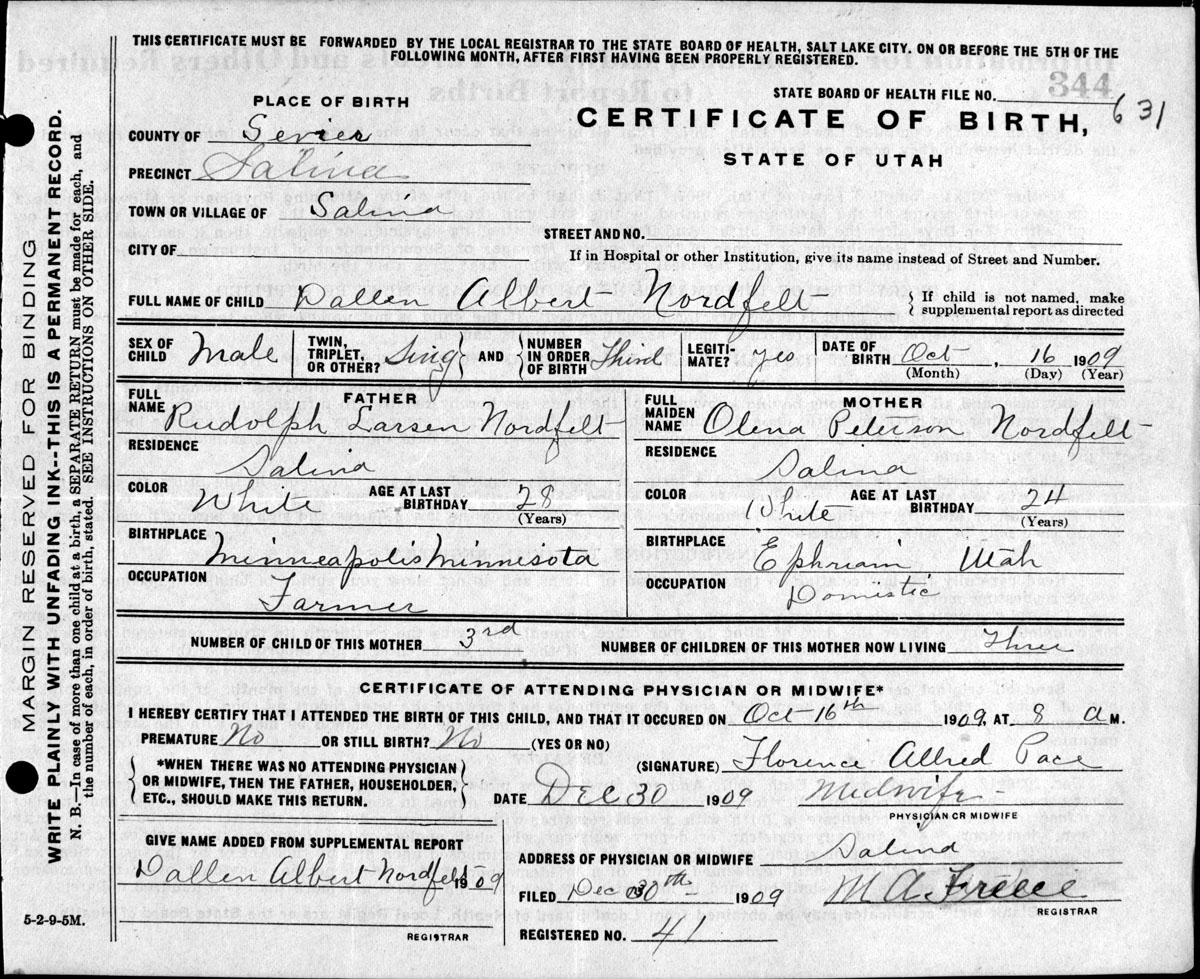 THIS CERTIFICATE MUST BE FORWARDED BY THE LOCAL REGISTRAR TO THE STATE BOARD OF HEALTH, SALT LAKE CITY. ON OR BEFORE THE 5TH OF THE
FOLLOWING MONTH, AFTER FIRST HAVING BEEN PROPERLY REGISTERED.
344
STATE BOARD OF HEALTH FILE NO. 631
PLACE OF BIRTH
CERTIFICATE OF BIRTH,
STATE OF UTAH
COUNTY OF Sevier
PRECINCT Salina
TOWN OR VILLAGE OF Salina
STREET AND NO.
CITY OF
If in Hospital or other Institution, give its name instead of Street and Number.
FULL NAME OF CHILD Dallen Albert Nordfelt
If child is not named, make
supplemental report as directed
SEX OF
CHILD Male
TWIN,
TRIPLET,
OR OTHER? Sing
AND
NUMBER
IN ORDER
OF BIRTH Third
LEGITI-
MATE? yes
DATE OF
BIRTH Oct, 16 1909
(Month) (Day) (Year)
FATHER
FULL
NAME Rudolph Larsen Nordfelt
RESIDENCE
Salina
COLOR White AGE AT LAST
BIRTHDAY 28
(Years)
BIRTHPLACE
Minneapolis Minnisota
OCCUPATION
Farmer
MOTHER
FULL
MAIDEN
NAME Olena Peterson Nordfelt
RESIDENCE
Salina
COLOR White AGE AT LAST
BIRTHDAY 24
(Years)
BIRTHPLACE
Ephriam Utah
OCCUPATION
Domistic
NUMBER OF CHILD OF THIS MOTHER 3rd
NUMBER OF CHILDREN OF THIS MOTHER NOW LIVING Three
CERTIFICATE OF ATTENDING PHYSICIAN OR MIDWIFE*
I HEREBY CERTIFY THAT I ATTENDED THE BIRTH OF THIS CHILD, AND THAT IT OCCURED ON Oct-16th 1909, AT 8 a M.
PREMATURE No OR STILL BIRTH? No (YES OR NO)
*WHEN THERE WAS NO ATTENDING PHYSICIAN
OR MIDWIFE, THEN THE FATHER, HOUSEHOLDER,
ETC., SHOULD MAKE THIS RETURN.
(SIGNATURE) Florence Allred Pace
DATE Dec 30 1909 Midwife
PHYSICIAN OR MIDWIFE
GIVE NAME ADDED FROM SUPPLEMENTAL REPORT
Dallen Albert Nordfelt 1909
REGISTRAR
ADDRESS OF PHYSICIAN OR MIDWIFE Salina
FILED Dec 30th 1909 M. A.
REGISTRAR
REGISTERED NO. 41
5-2-9-5M.
MARGIN RESERVED FOR BINDING
WRITE PLAINLY WITH UNFADING INK--THIS IS A PERMANENT RECORD.
N. B.—In case of more than one child at a birth, a SEPARATE RETURN must be made for each, and
the number of each, in order of birth, stated. SEE INSTRUCTIONS ON OTHER SIDE.